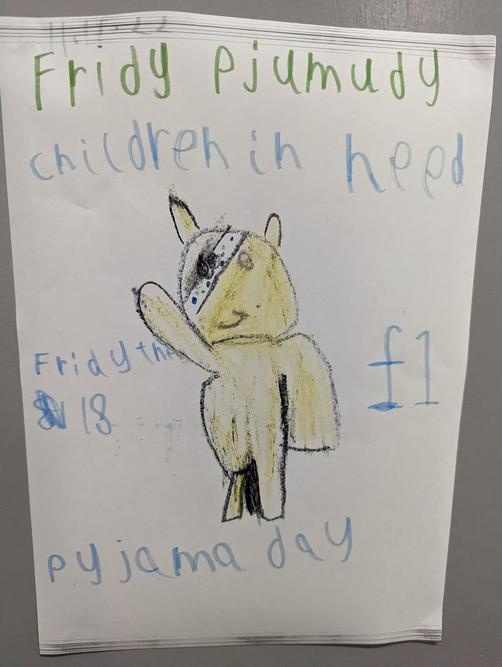 11.11.22
Fridy Pjumudy
children in need
Fridy the
18
£1
pyjama day